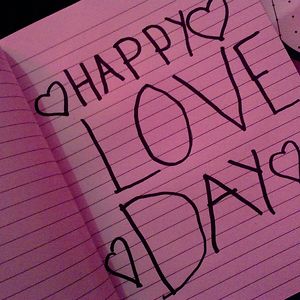 HAPPY
LOVE
DAY